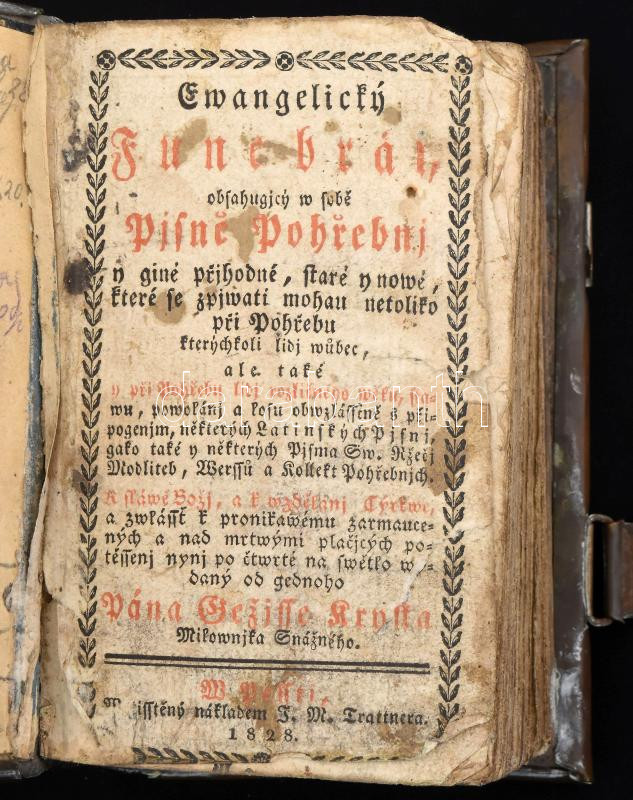 Ewangelický
Funebrál,
obsahugjcý w sobě
Pjsně Pohřebnj
y giné přjhodné, staré y nowé,
které se zpjwati mohau netoliko
při Pohřebu
kterýchkoli lidj wůbec,
ale také
y při Pohřebu lidj rozličného wěku, sta-
wu, powolánj a losu obwzlásstně s při-
pogenjm, některých Latinských Pjsnj,
gako také y některých Pjsma Sw. Ržečj
Modliteb, Werssů a Kollekt Pohřebnjch.
K sláwě Božj, a k wzdělánj Cýrkwe,
a zwlásst k pronikawému zarmauce-
ných a nad mrtwými plačjcých po-
těssenj nynj po čtwrté na swětlo wy-
daný od gednoho
Pána Gežjsse Krysta
Milownjka Snážného.
W Pessti,
tisstěný nákladem J. M. Trattnera.
1828.